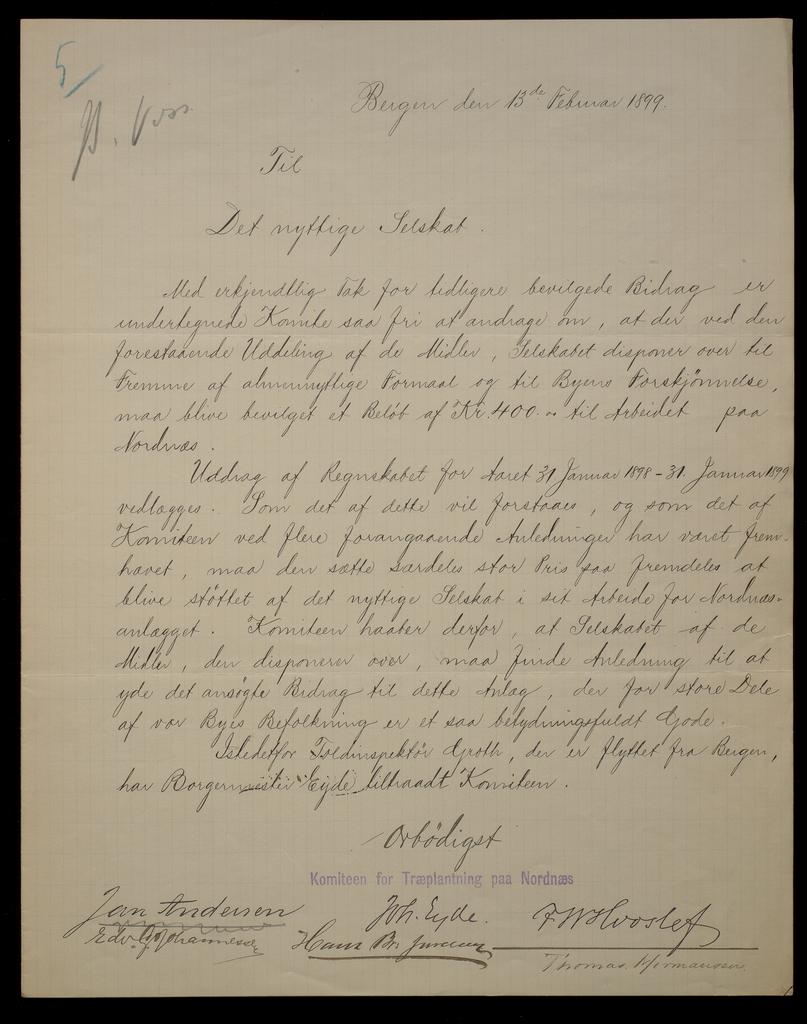 5
Bergen den 13de Februar 1899.
Til
Det nyttige Selskab.
Med erkjendtlig Tak for tidligere bevilgede Bidrag er
undertegnede Komite saa fri at andrage om, at der ved den
forestaaende Uddeling af de Midler, Selskabet disponer over til
Fremme af almennyttige Formaal og til Byens Forskjønnelse,
maa blive bevilget et Beløb af Kr. 400.- til Arbeidet paa
Nordnæs.
Uddrag af Regnskabet for Aaret 31 Januar 1898 - 31. Januar 1899
vedlægges. Som det af dette vil forstaaes, og som det af
Komiteen ved flere forangaaende Anledninger har været frem-
hævet, maa den sætte særdeles stor Pris paa fremdeles at
blive støttet af det nyttige Selskab i sit Arbeide for Nordnæs-
anlægget. Komiteen haaber derfor, at Selskabet af de
Midler, den disponerer over, maa finde Anledning til at
yde det ansøgte Bidrag til dette Anlæg, der for store Dele
af vor Byes Befolkning er et saa betydningsfuldt Gode.
Istedetfor Toldinspektør Groth, der er flyttet fra Bergen,
har Borgermester Eyde tiltraadt Komiteen.
Ærbødigst
Komiteen for Træplantning paa Nordnæs
Jan Andersen Joh. Eyde. F W Hvoslef
Edv. G. Johannessen Hans Br.
Thomas Hermanssen